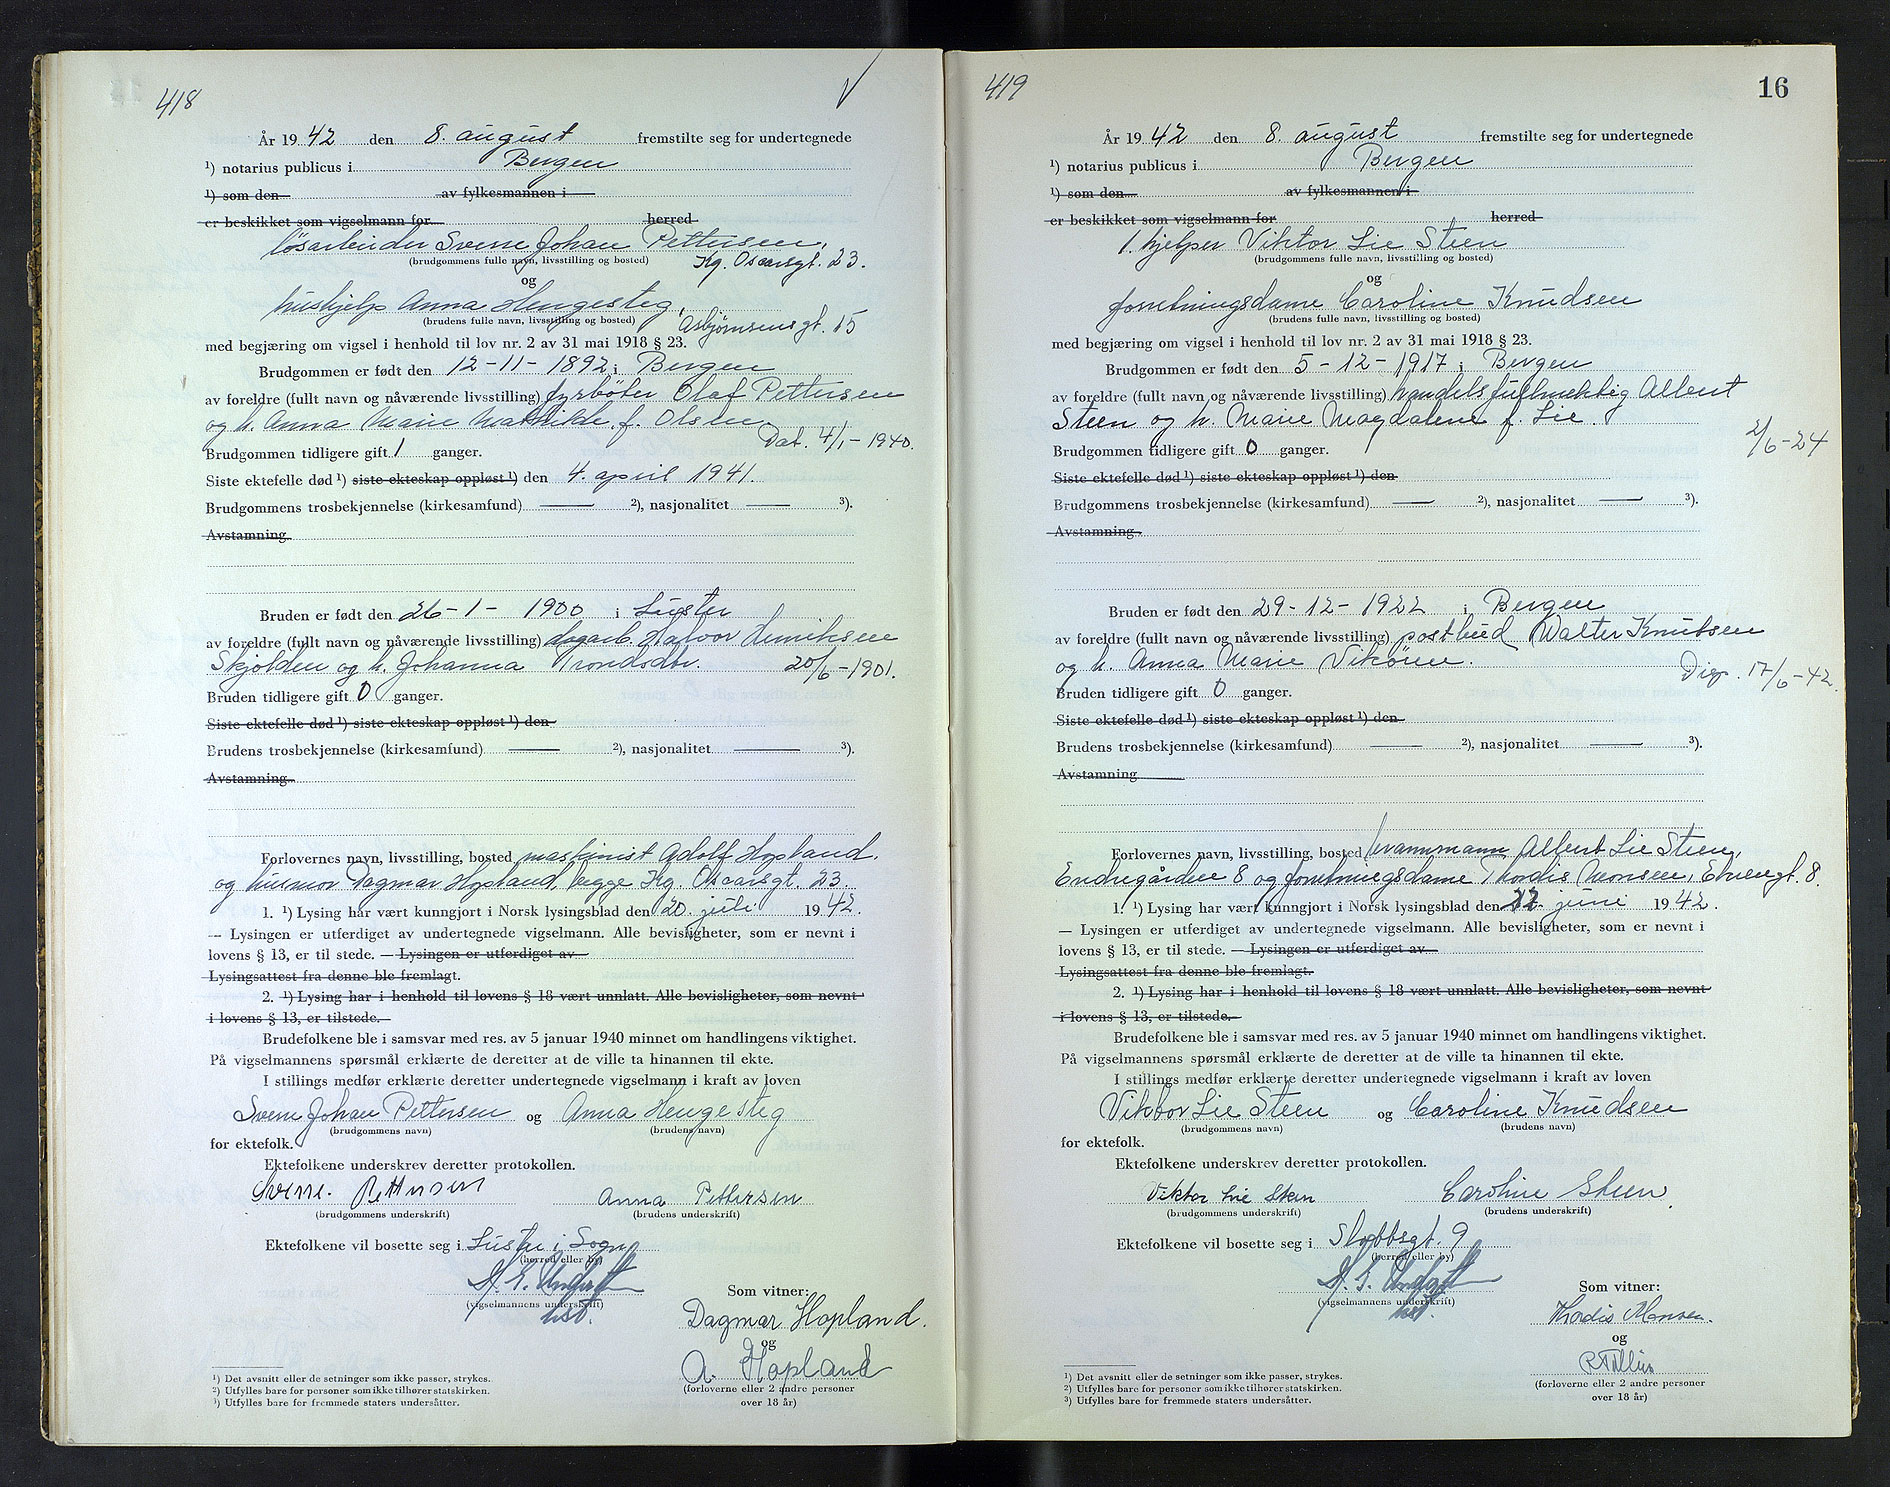 418
År 1942 den 8. august fremstilte seg for undertegnede
¹) notarius publicus i Bergen
¹) som den av fylkesmannen i
er beskikket som vigselmann for herred
løsarbeider Sverre Johan Pettersen,
(brudgommens fulle navn, livsstilling og bosted) Kg. Oscarsgt. 23.
og
hushjelp Anna Hengesteg,
(brudens fulle navn, livsstilling og bosted) Asbjørnsensgt. 15
med begjæring om vigsel i henhold til lov nr. 2 av 31 mai 1918 § 23.
Brudgommen er født den 12-11-1892 i Bergen
av foreldre (fullt navn og nåværende livsstilling) fyrbøter Olaf Pettersen
og h. Anna Marie Mathilde f. Olsen.
Dat. 4/1-1940.
Brudgommen tidligere gift 1 ganger.
Siste ektefelle død ¹) siste ekteskap oppløst ¹) den 4. april 1941.
Brudgommens trosbekjennelse (kirkesamfund) — ²), nasjonalitet — ³).
Avstamning
Bruden er født den 26-1-1900 i Luster
av foreldre (fullt navn og nåværende livsstilling) dagarb. Halvor Henriksen
Skjolden og h. Johanna Trondsdtr. 20/6-1901.
Bruden tidligere gift 0 ganger.
Siste ektefelle død ¹) siste ekteskap oppløst ¹) den
Brudens trosbekjennelse (kirkesamfund) — ²), nasjonalitet — ³).
Avstamning
Forlovernes navn, livsstilling, bosted maskinist Adolf Hopland.
og husmor Dagmar Hopland, begge Kg. Oscarsgt. 23.
1. ¹) Lysing har vært kunngjort i Norsk lysingsblad den 20. juli 1942.
— Lysingen er utferdiget av undertegnede vigselmann. Alle bevisligheter, som er nevnt i
lovens § 13, er til stede. — Lysingen er utferdiget av
Lysingsattest fra denne ble fremlagt.
2. ¹) Lysing har i henhold til lovens § 18 vært unnlatt. Alle bevisligheter, som nevnt
i lovens § 13, er tilstede.
Brudefolkene ble i samsvar med res. av 5 januar 1940 minnet om handlingens viktighet.
På vigselmannens spørsmål erklærte de deretter at de ville ta hinannen til ekte.
I stillings medfør erklærte deretter undertegnede vigselmann i kraft av loven
Sverre Johan Pettersen og Anna Hengesteg
(brudgommens navn) (brudens navn)
for ektefolk.
Ektefolkene underskrev deretter protokollen.
Sverre. Pettersen Anna Pettersen
(brudgommens underskrift) (brudens underskrift)
Ektefolkene vil bosette seg i Luster i Sogn
(herred eller by)
(vigselmannens underskrift)
Som vitner:
Dagmar Hopland.
og
A. Hopland
(forloverne eller 2 andre personer
over 18 år)
¹) Det avsnitt eller de setninger som ikke passer, strykes.
²) Utfylles bare for personer som ikke tilhører statskirken.
³) Utfylles bare for fremmede staters undersåtter.
419
16
År 1942 den 8. august fremstilte seg for undertegnede
¹) notarius publicus i Bergen
¹) som den av fylkesmannen i
er beskikket som vigselmann for herred
1. hjelper Viktor Lie Steen
(brudgommens fulle navn, livsstilling og bosted)
og
forretningsdame Caroline Knudsen
(brudens fulle navn, livsstilling og bosted)
med begjæring om vigsel i henhold til lov nr. 2 av 31 mai 1918 § 23.
Brudgommen er født den 5-12-1917 i Bergen
av foreldre (fullt navn og nåværende livsstilling) handelsfullmektig Albert
Steen og h. Marie Magdalene f. Lie.
2/6-24
Brudgommen tidligere gift 0 ganger.
Siste ektefelle død ¹) siste ekteskap oppløst ¹) den
Brudgommens trosbekjennelse (kirkesamfund) — ²), nasjonalitet — ³).
Avstamning
Bruden er født den 29-12-1922 i Bergen
av foreldre (fullt navn og nåværende livsstilling) postbud Walter Knutsen
og h. Anna Marie Vikøren.
Disp. 17/6-42.
Bruden tidligere gift 0 ganger.
Siste ektefelle død ¹) siste ekteskap oppløst ¹) den
Brudens trosbekjennelse (kirkesamfund) — ²), nasjonalitet — ³).
Avstamning
Forlovernes navn, livsstilling, bosted brannmann Albert Lie Steen,
Endregården 8 og forretningsdame Thordis Monsen, 8.
1. ¹) Lysing har vært kunngjort i Norsk lysingsblad den 22. juni 1942.
— Lysingen er utferdiget av undertegnede vigselmann. Alle bevisligheter, som er nevnt i
lovens § 13, er til stede. — Lysingen er utferdiget av
Lysingsattest fra denne ble fremlagt.
2. ¹) Lysing har i henhold til lovens § 18 vært unnlatt. Alle bevisligheter, som nevnt
i lovens § 13, er tilstede.
Brudefolkene ble i samsvar med res. av 5 januar 1940 minnet om handlingens viktighet.
På vigselmannens spørsmål erklærte de deretter at de ville ta hinannen til ekte.
I stillings medfør erklærte deretter undertegnede vigselmann i kraft av loven
Viktor Lie Steen og Caroline Knudsen
(brudgommens navn) (brudens navn)
for ektefolk.
Ektefolkene underskrev deretter protokollen.
Viktor Lie Steen Caroline Steen
(brudgommens underskrift) (brudens underskrift)
Ektefolkene vil bosette seg i Sløttsgt. 9
(herred eller by)
(vigselmannens underskrift)
Som vitner:
Thordis Monsen.
og
(forloverne eller 2 andre personer
over 18 år)
¹) Det avsnitt eller de setninger som ikke passer, strykes.
²) Utfylles bare for personer som ikke tilhører statskirken.
³) Utfylles bare for fremmede staters undersåtter.